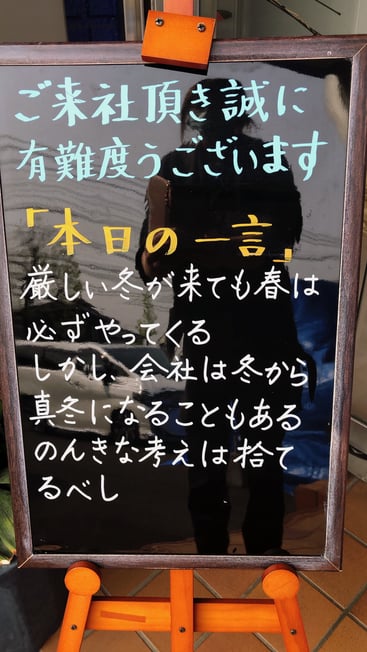 ご来社頂き誠に
有難度うございます
「本日の一言」
厳しい冬が来ても春は
必ずやってくる
しかし、会社は冬から
真冬になることもある
のんきな考えは捨て
るべし